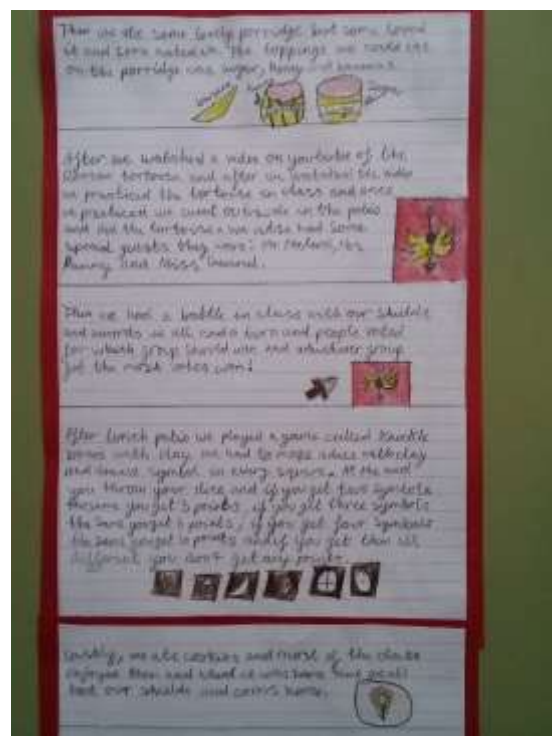 Then we ate some lovely porridge but some loved
it and some hated it. The toppings we could eat
on the porridge was sugar, honey and bananas.
After we watched a video on youtube of the
Roman tortoise and after we watched the video
we practiced the tortoise in class and once
we practiced we went outside in the patio
and did the tortoise. we also had some
special guests they were: Mr
and Miss
Then we had a battle in class with our shields
and swords we all had a turn and people voted
for which group should win and whichever group
got the most votes won!
After lunch patio we played a game called knuckle
bones with clay. we had to make a dice with clay
and draw a symbol on every square. At the end
you throw your dice and if you get two symbols
the same you get 3 points, if you get three symbols
the same you get 6 points, if you get four symbols
the same you get 10 points and if you get them all
different you don't get any points.
Lastly, we ate cookies and most of the class
enjoyed them and when it was home time we all
took our shields and coins home.